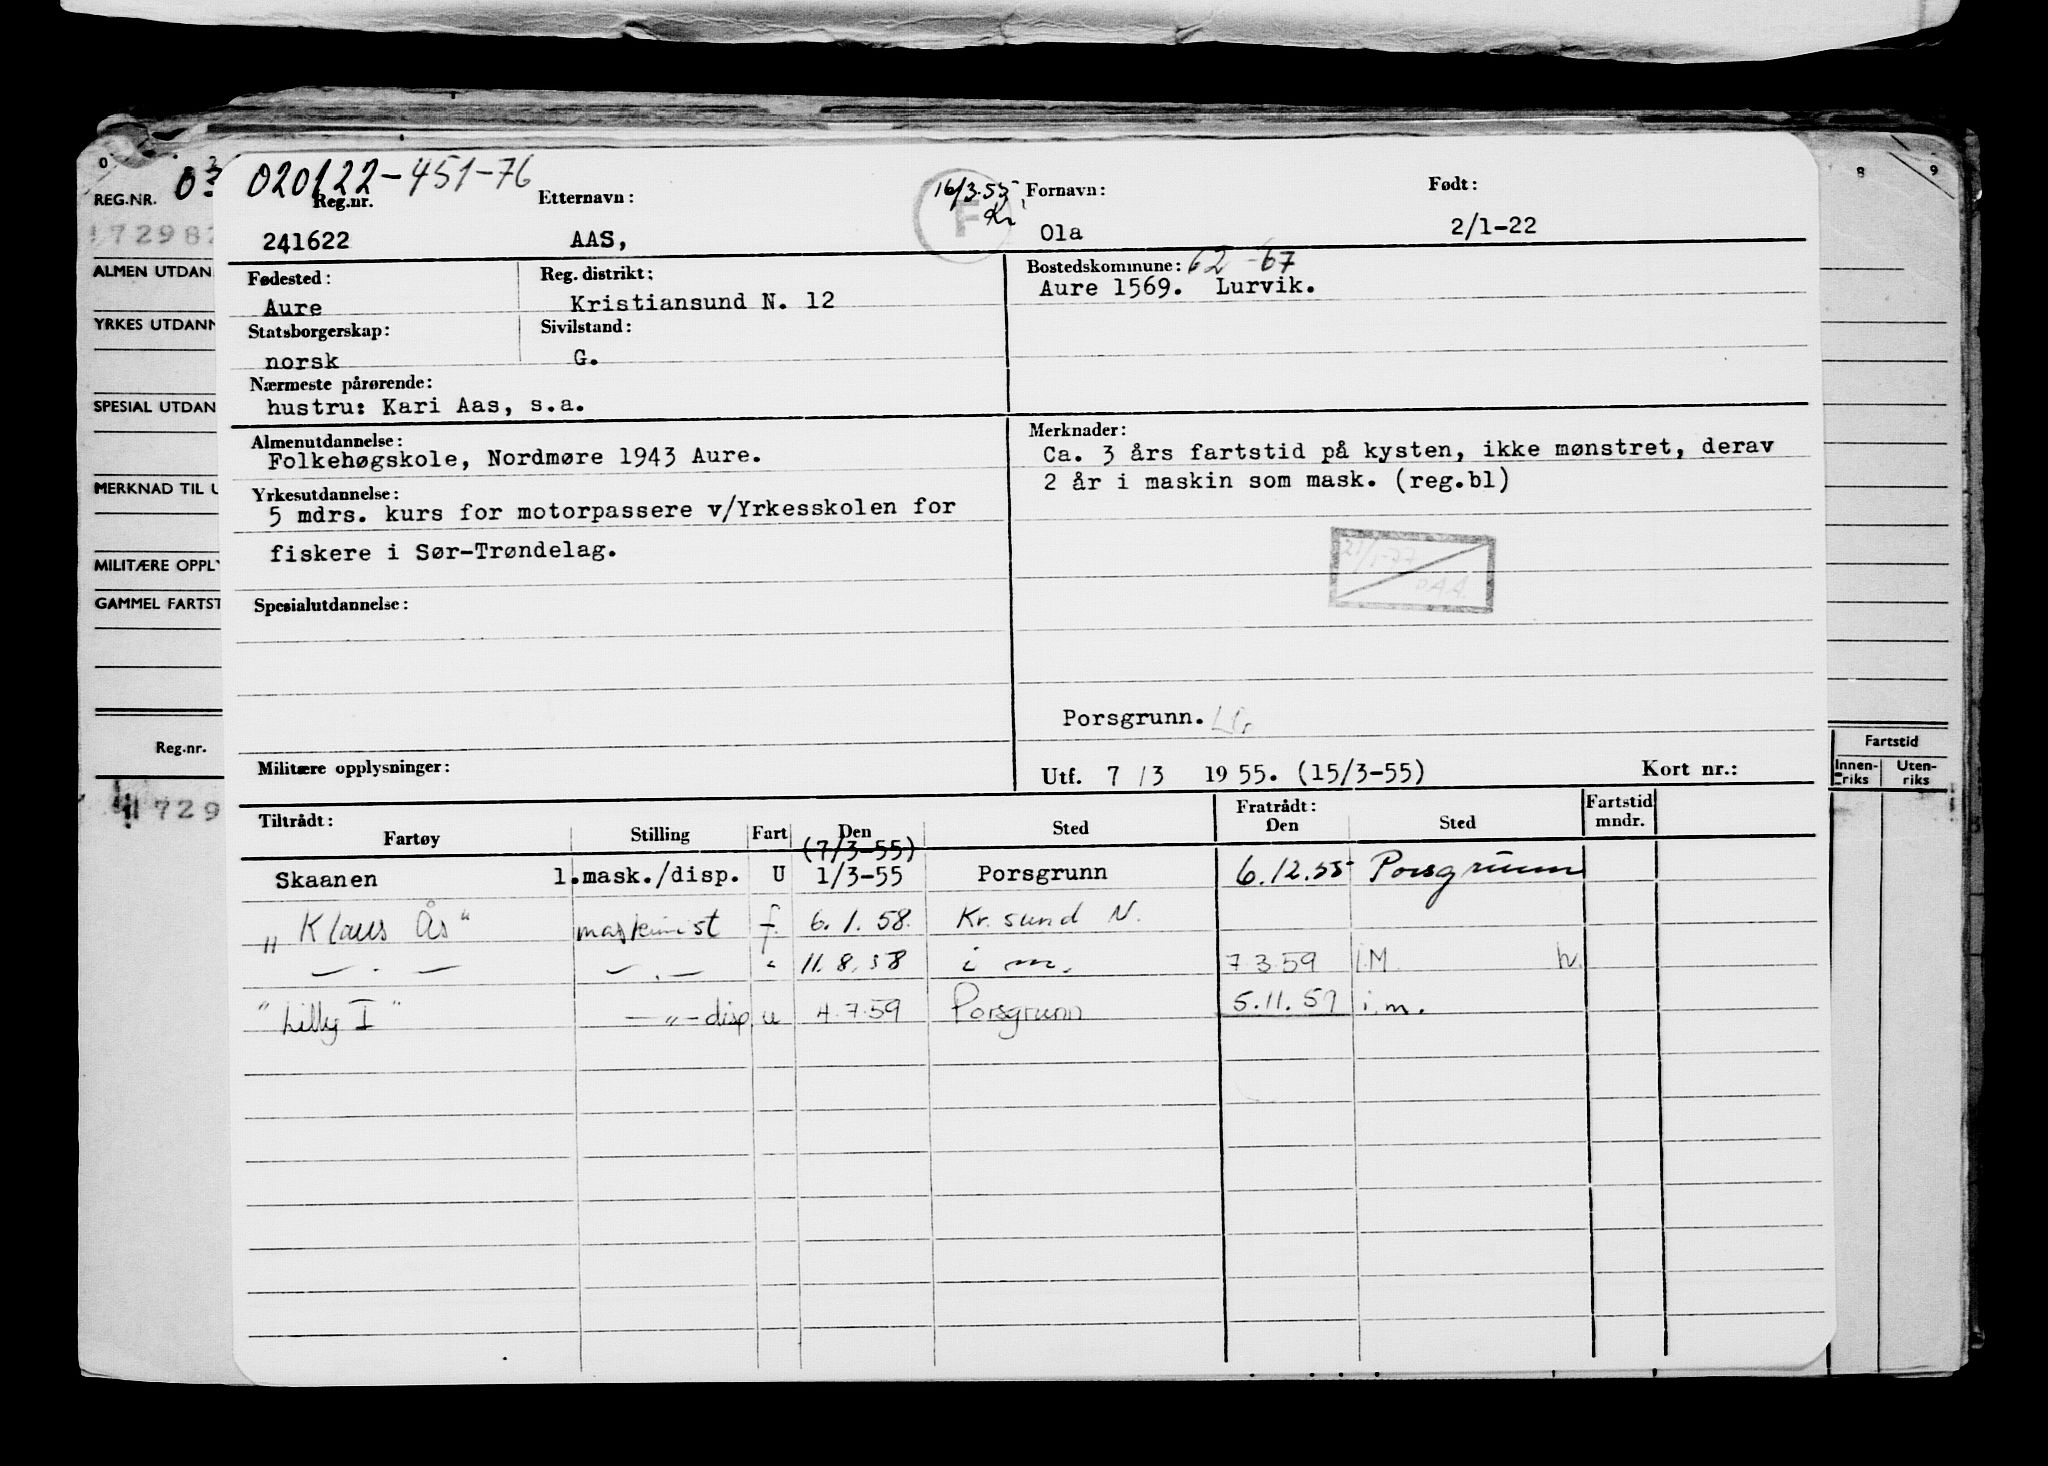 020122-451-76
Reg.nr. Etternavn: 16/3.55 Kr. F Fornavn: Født:
241622 AAS, Ola 2/1-22
Fødested: Reg. distrikt: Bostedskommune: 62-67
Aure Kristiansund N. 12 Aure 1569. Lurvik.
Statsborgerskap: Sivilstand:
norsk G.
Nærmeste pårørende:
hustru: Kari Aas, s.a.
Almenutdannelse: Merknader:
Folkehøgskole, Nordmøre 1943 Aure. Ca. 3 års fartstid på kysten, ikke mønstret, derav
Yrkesutdannelse: 2 år i maskin som mask. (reg.bl)
5 mdrs. kurs for motorpassere v/Yrkesskolen for
fiskere i Sør-Trøndelag.
21/1-77
Spesialutdannelse:
Porsgrunn.
Militære opplysninger: Utf. 7/3 1955. (15/3-55) Kort nr.:
Tiltrådt: Fratrådt: Fartstid
Fartøy Stilling Fart Den Sted Den Sted mndr.
(7/3-55)
Skaanen 1.mask./disp. U 1/3-55 Porsgrunn 6.12.55 Porsgrunn
„Klaus Ås“ maskinist f. 6.1.58. Kr.sund N.
— . — — . — " 11.8.58 i m. 7.3.59 i.M. h.
"Lilly I" — „ — disp. u 4.7.59 Porsgrunn 5.11.59 i.m.
0
REG.NR. 03
172982
ALMEN UTDAN
YRKES UTDANN
SPESIAL UTDAN
MERKNAD TIL U
MILITÆRE OPPLY
GAMMEL FARTST
Reg.nr.
1729
8 9
Fartstid
Innen-riks Uten-riks